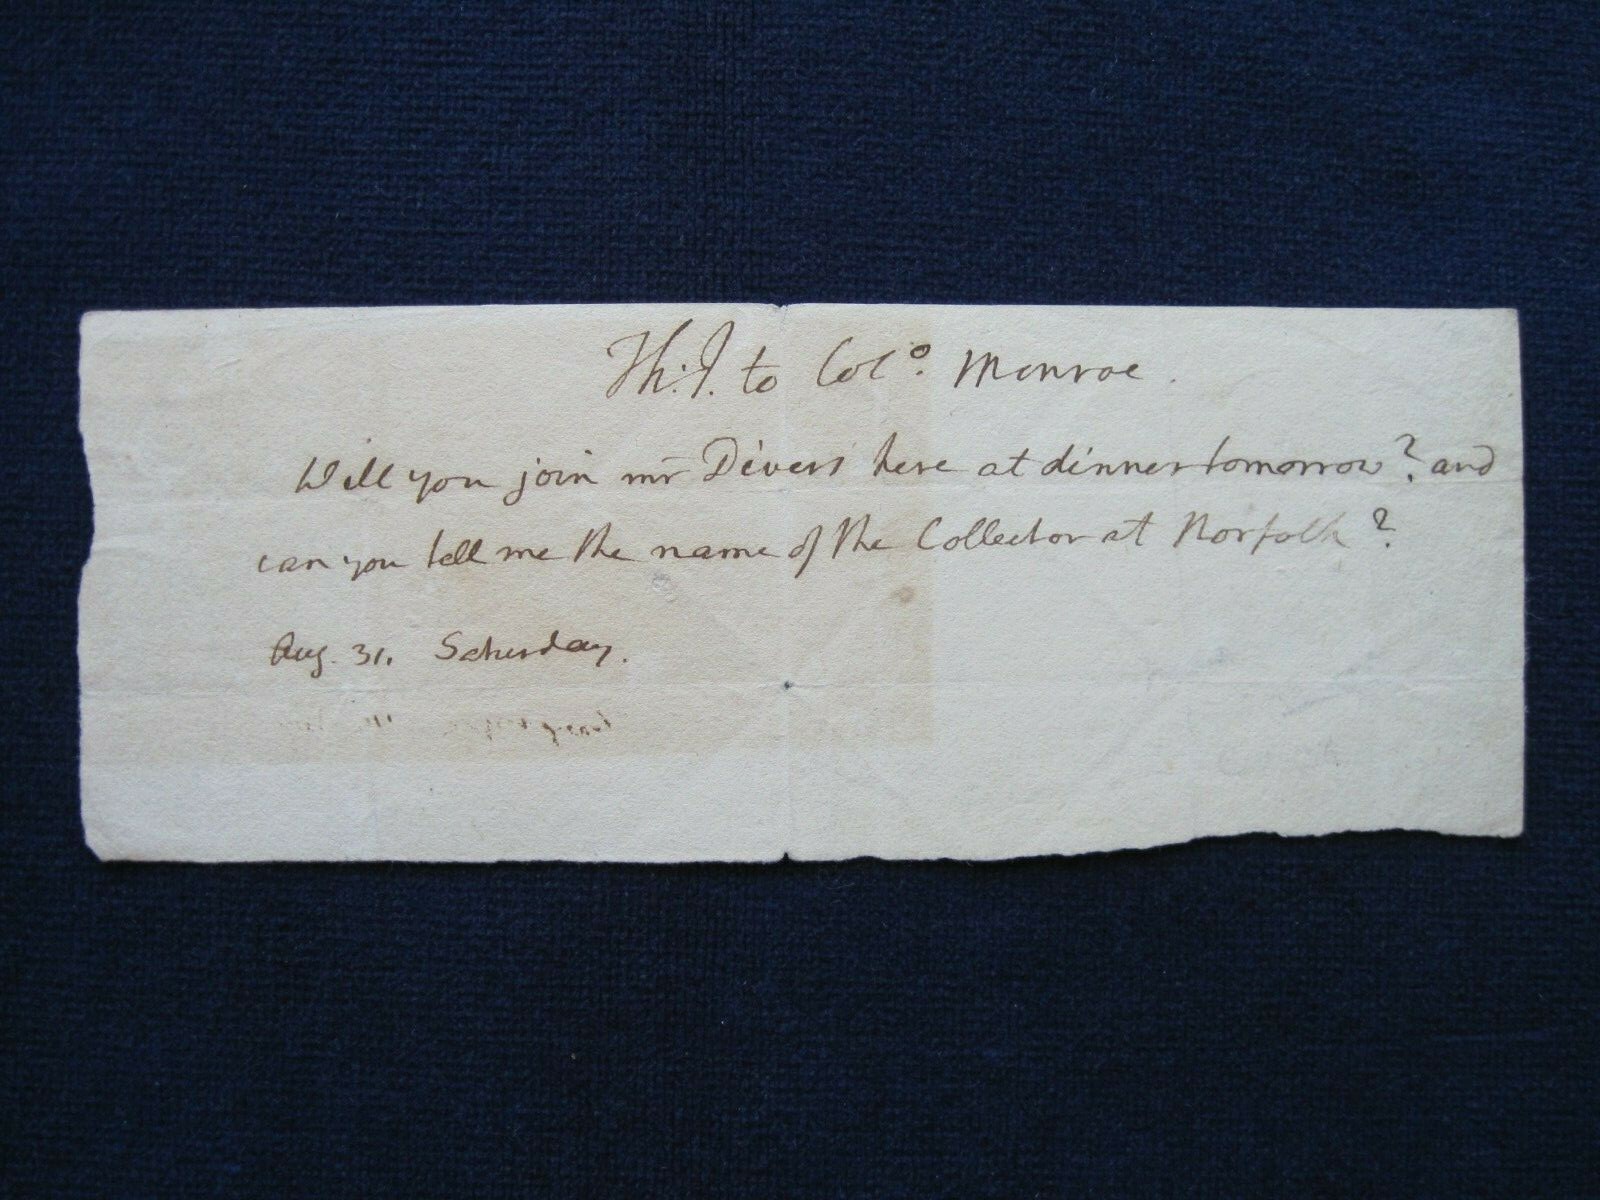 Th: J. to Col<sup>o</sup>. Monroe.
Will you join mr Divers here at dinner tomorrow? and
can you tell me the name of the Collector at Norfolk?
Aug. 31. Saturday.